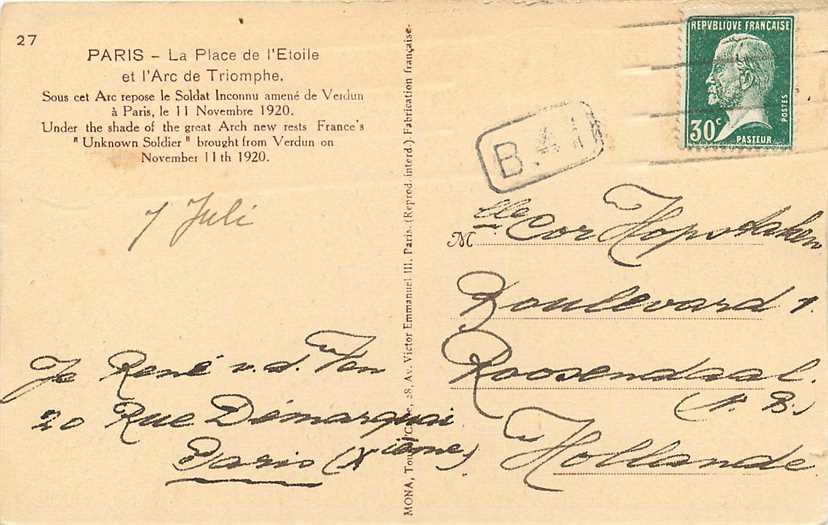 27
PARIS - La Place de l'Etoile
et l'Arc de Triomphe.
Sous cet Arc repose le Soldat Inconnu amené de Verdun
à Paris, le 11 Novembre 1920.
Under the shade of the great Arch new rests France's
"Unknown Soldier" brought from Verdun on
November 11th 1920.
7 Juli
Je René v.d.
20 Rue Démarquai
Paris (Xième)
Av. Victor Emmanuel III. Paris. (Reprod. interd.) Fabrication française.
REPVBLIQVE FRANÇAISE
POSTES
30c
PASTEUR
B.41
Mlle Cor
Boulevard 1.
Roosendaal.
(N. B.)
Hollande